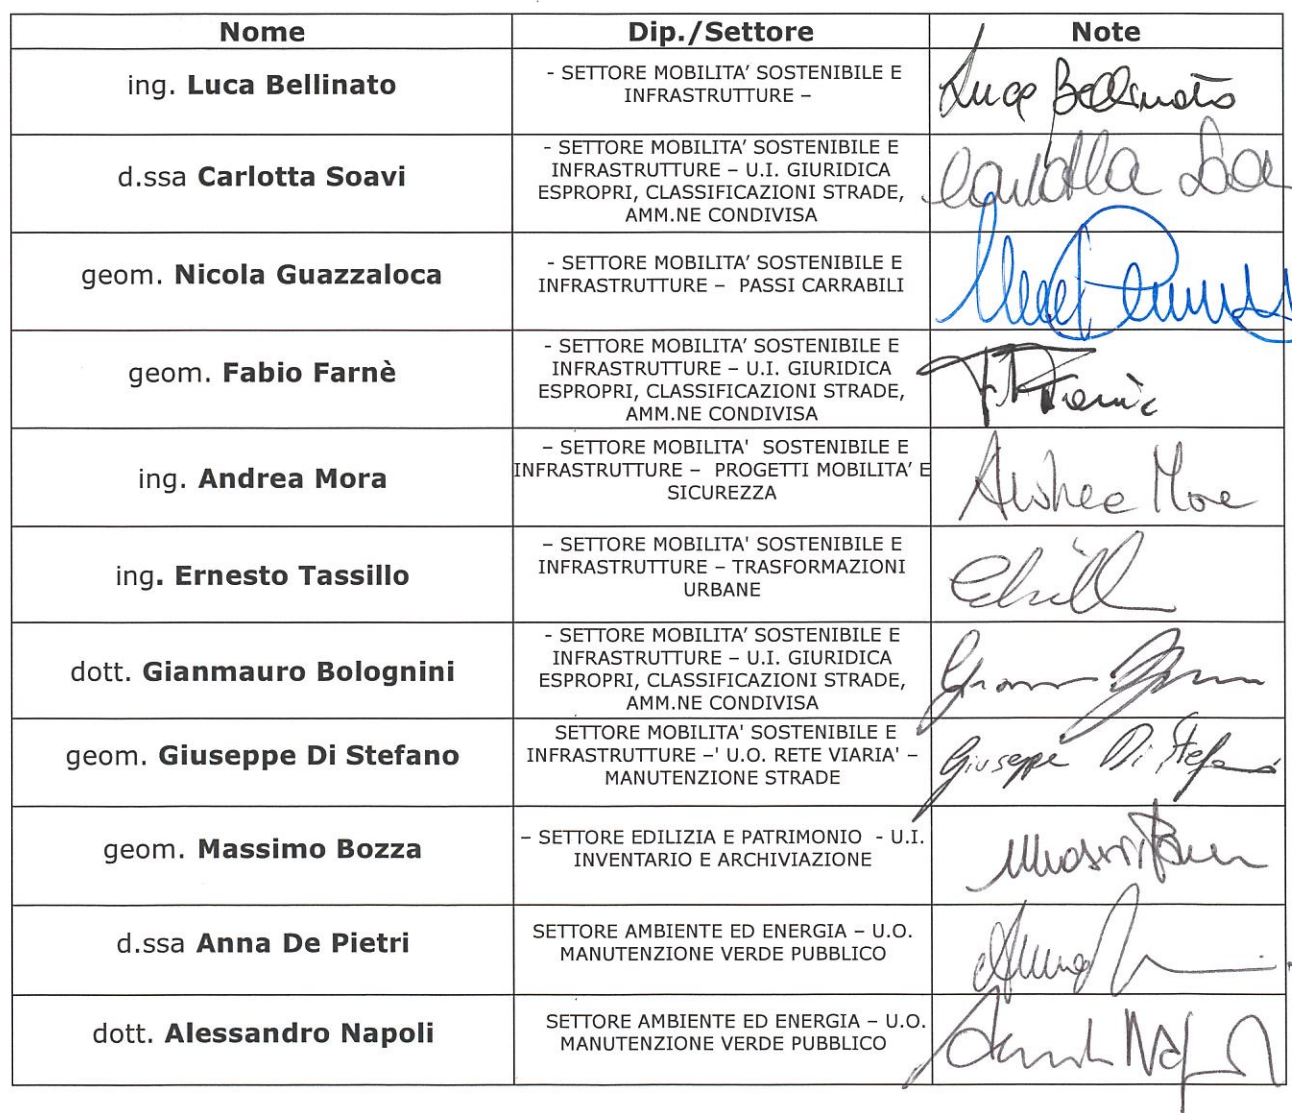 Nome Dip./Settore Note
ing. Luca Bellinato
- SETTORE MOBILITA’ SOSTENIBILE E
INFRASTRUTTURE –
Luca Bellinato
d.ssa Carlotta Soavi
- SETTORE MOBILITA’ SOSTENIBILE E
INFRASTRUTTURE – U.I. GIURIDICA
ESPROPRI, CLASSIFICAZIONI STRADE,
AMM.NE CONDIVISA
Carlotta
geom. Nicola Guazzaloca
- SETTORE MOBILITA’ SOSTENIBILE E
INFRASTRUTTURE – PASSI CARRABILI
geom. Fabio Farnè
- SETTORE MOBILITA’ SOSTENIBILE E
INFRASTRUTTURE – U.I. GIURIDICA
ESPROPRI, CLASSIFICAZIONI STRADE,
AMM.NE CONDIVISA
ing. Andrea Mora
– SETTORE MOBILITA' SOSTENIBILE E
INFRASTRUTTURE – PROGETTI MOBILITA’ E
SICUREZZA
Andrea Mora
ing. Ernesto Tassillo
– SETTORE MOBILITA' SOSTENIBILE E
INFRASTRUTTURE – TRASFORMAZIONI
URBANE
dott. Gianmauro Bolognini
- SETTORE MOBILITA’ SOSTENIBILE E
INFRASTRUTTURE – U.I. GIURIDICA
ESPROPRI, CLASSIFICAZIONI STRADE,
AMM.NE CONDIVISA
geom. Giuseppe Di Stefano
SETTORE MOBILITA' SOSTENIBILE E
INFRASTRUTTURE –' U.O. RETE VIARIA' –
MANUTENZIONE STRADE
Giuseppe Di Stefano
geom. Massimo Bozza
– SETTORE EDILIZIA E PATRIMONIO - U.I.
INVENTARIO E ARCHIVIAZIONE
d.ssa Anna De Pietri
SETTORE AMBIENTE ED ENERGIA – U.O.
MANUTENZIONE VERDE PUBBLICO
dott. Alessandro Napoli
SETTORE AMBIENTE ED ENERGIA – U.O.
MANUTENZIONE VERDE PUBBLICO